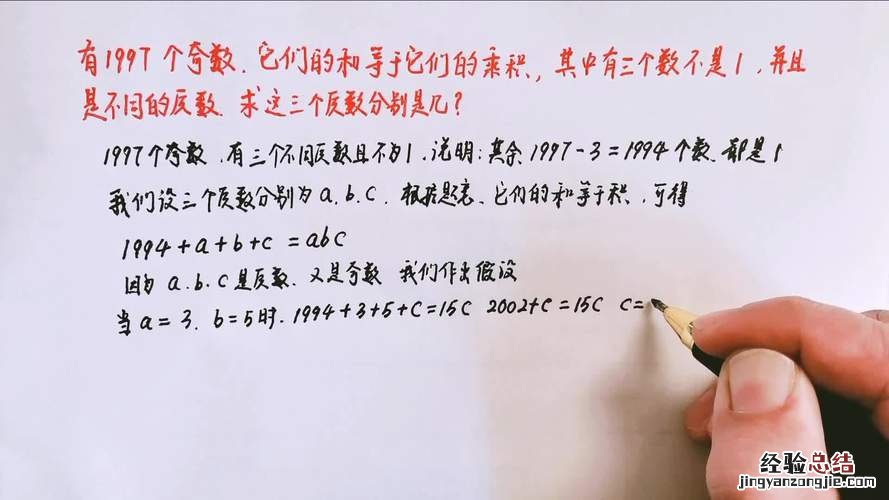 有1997个奇数.它们的和等于它们的乘积,其中有三个数不是1,并且
是不同的质数.求这三个质数分别是几?
1997个奇数,有三个不同质数且不为1,说明:其余1997-3=1994个数.都是1
我们设三个质数分别为a.b.c.根据题意、它们的和等于积,可得
1994+a+b+c=abc
因为a.b.c是质数.又是奇数 我们作出假设
当a=3.b=5时.1994+3+5+c=15c 2002+c=15c c=
经验总结
jingyanzongjie.com